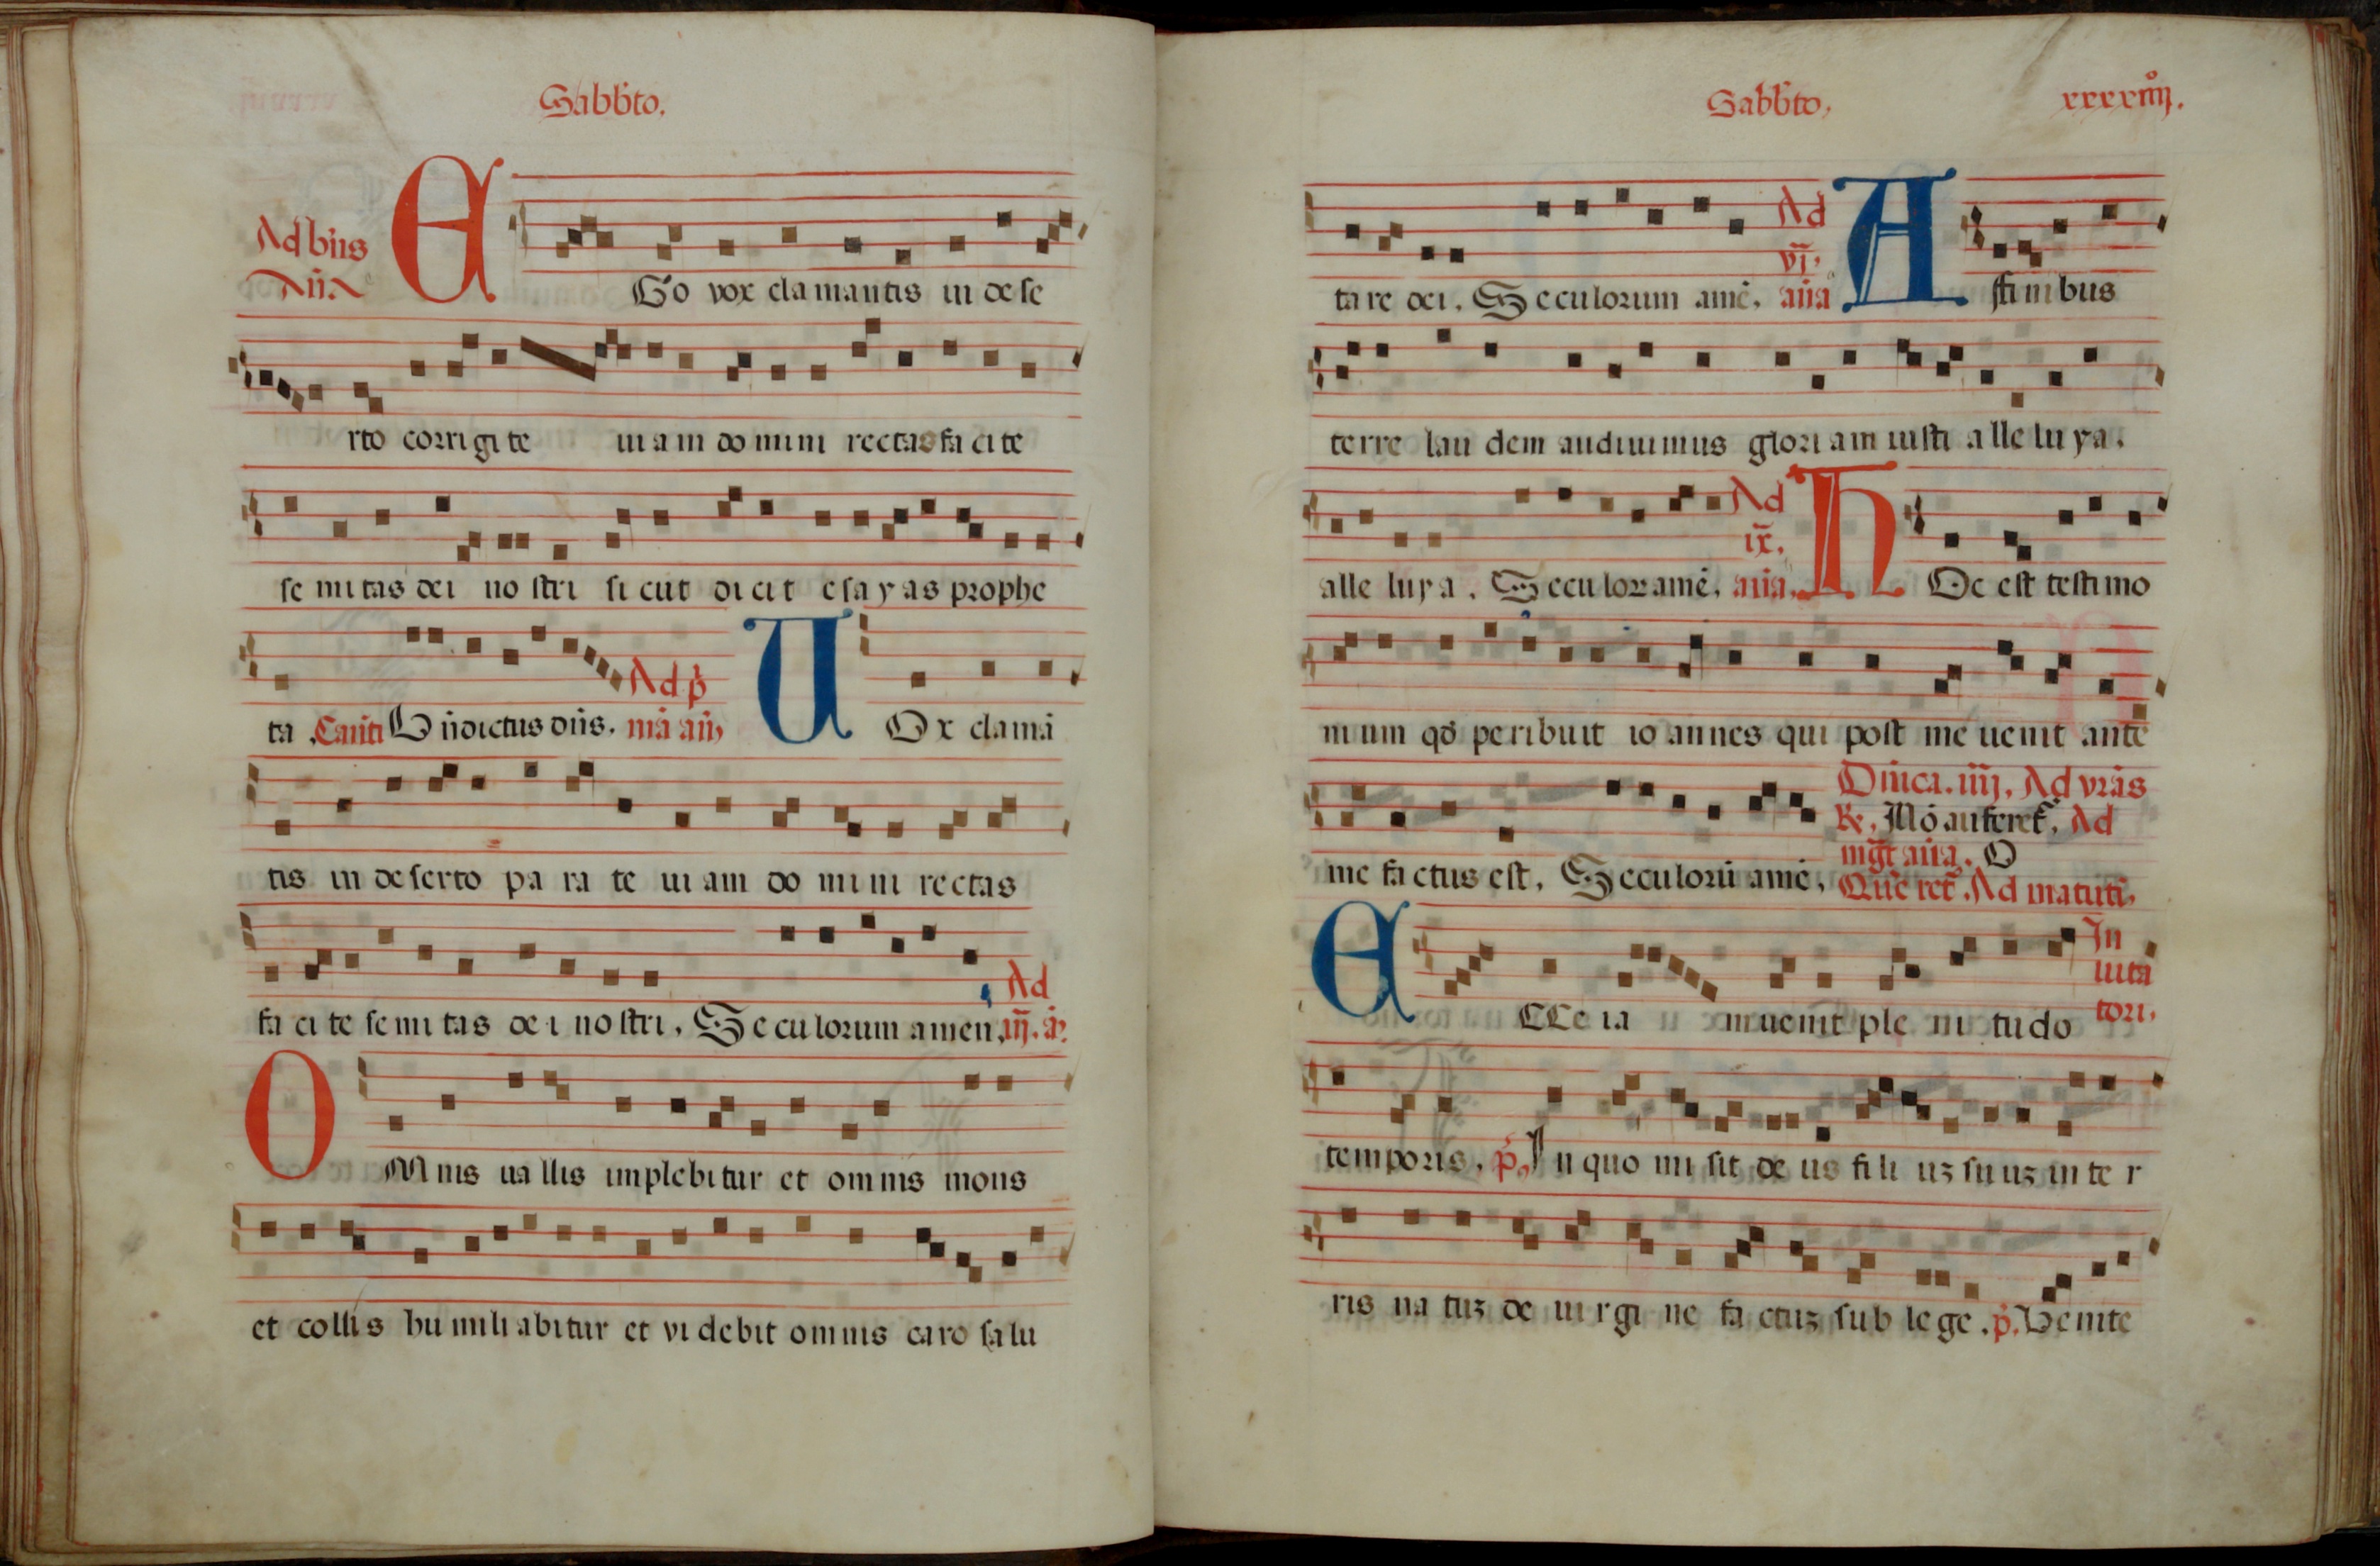 Sabb̄to.
Ad bn̄s
an̄.
EGo vox clamantis in dese
rto corrigite uiam domini rectas facite
semitas dei nostri sicut dicit esayas prophe
ta .Canti Bn̄dictus dn̄s. Ad p̄
mā an̄.
UOx clamā
tis in deserto parate uiam domini rectas
facite semitas dei nostri. Seculorum amen. Ad
iij. a.
OMnis uallis implebitur et omnis mons
et collis humiliabitur et videbit omnis caro salu
Sabb̄to.
xxxxiiij.
tare dei. Seculorum amē. Ad
vj.
an̄a
A finibus
terre laudem audiuimus gloriam iusti alleluya.
alleluya. Seculoꝝ amē. Ad
ix.
an̄a.
HOc est testimo
nium qd̄ peribuit ioannes qui post me uenit ante
me factus est. Seculorū amē.
Dn̄ica. iiij. Ad vrās
℟. Nō auferet̄. Ad
mgt̄ an̄a. O
Que ret̄. Ad matuti.
ECCe iam uenit plenitudo
In
uita
tori.
temporis. p̄. In quo misit deus filiuꝫ suuꝫ in ter
ris natuꝫ de uirgine factuꝫ sub lege. p̄. Venite